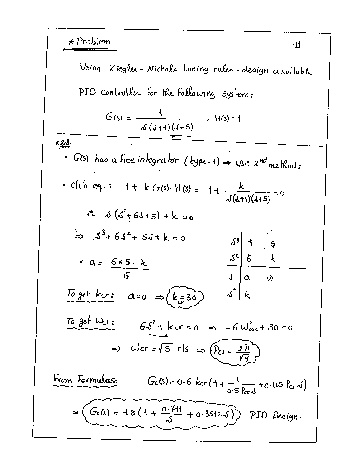 * Problem
Using Ziegler-Nichols tuning rules - design a suitable
PID controller for the following system:
G(s) = 1 / s(s+1)(s+5) , H(s) = 1
• G(s) has a free integrator (type-1) ⇒ use 2nd method:
• C/s eq.: 1 + k G(s) H(s) = 1 + k / s(s+1)(s+5) = 0
∴ s (s² + 6s + 5) + k = 0
⇒ s³ + 6s² + 5s + k = 0
s³ 1 5
s² 6 k
s a 0
s° k
∴ a = 6×5 - k /
To get kcr: a=0 ⇒ k = 30
To get Wcr: 6s² + kcr = 0 ⇒ -6 W²cr + 30 = 0
⇒ Wcr = √5 r/s ⇒ Pcr = 2π / √5
From Formulas: Gc(s) = 0.6 kcr (1 + 1 / 0.5 Pcr s + 0.125 Pcr s)
⇒ Gc(s) = 18 (1 + 0.711 / s + 0.3512 s) PID Design.